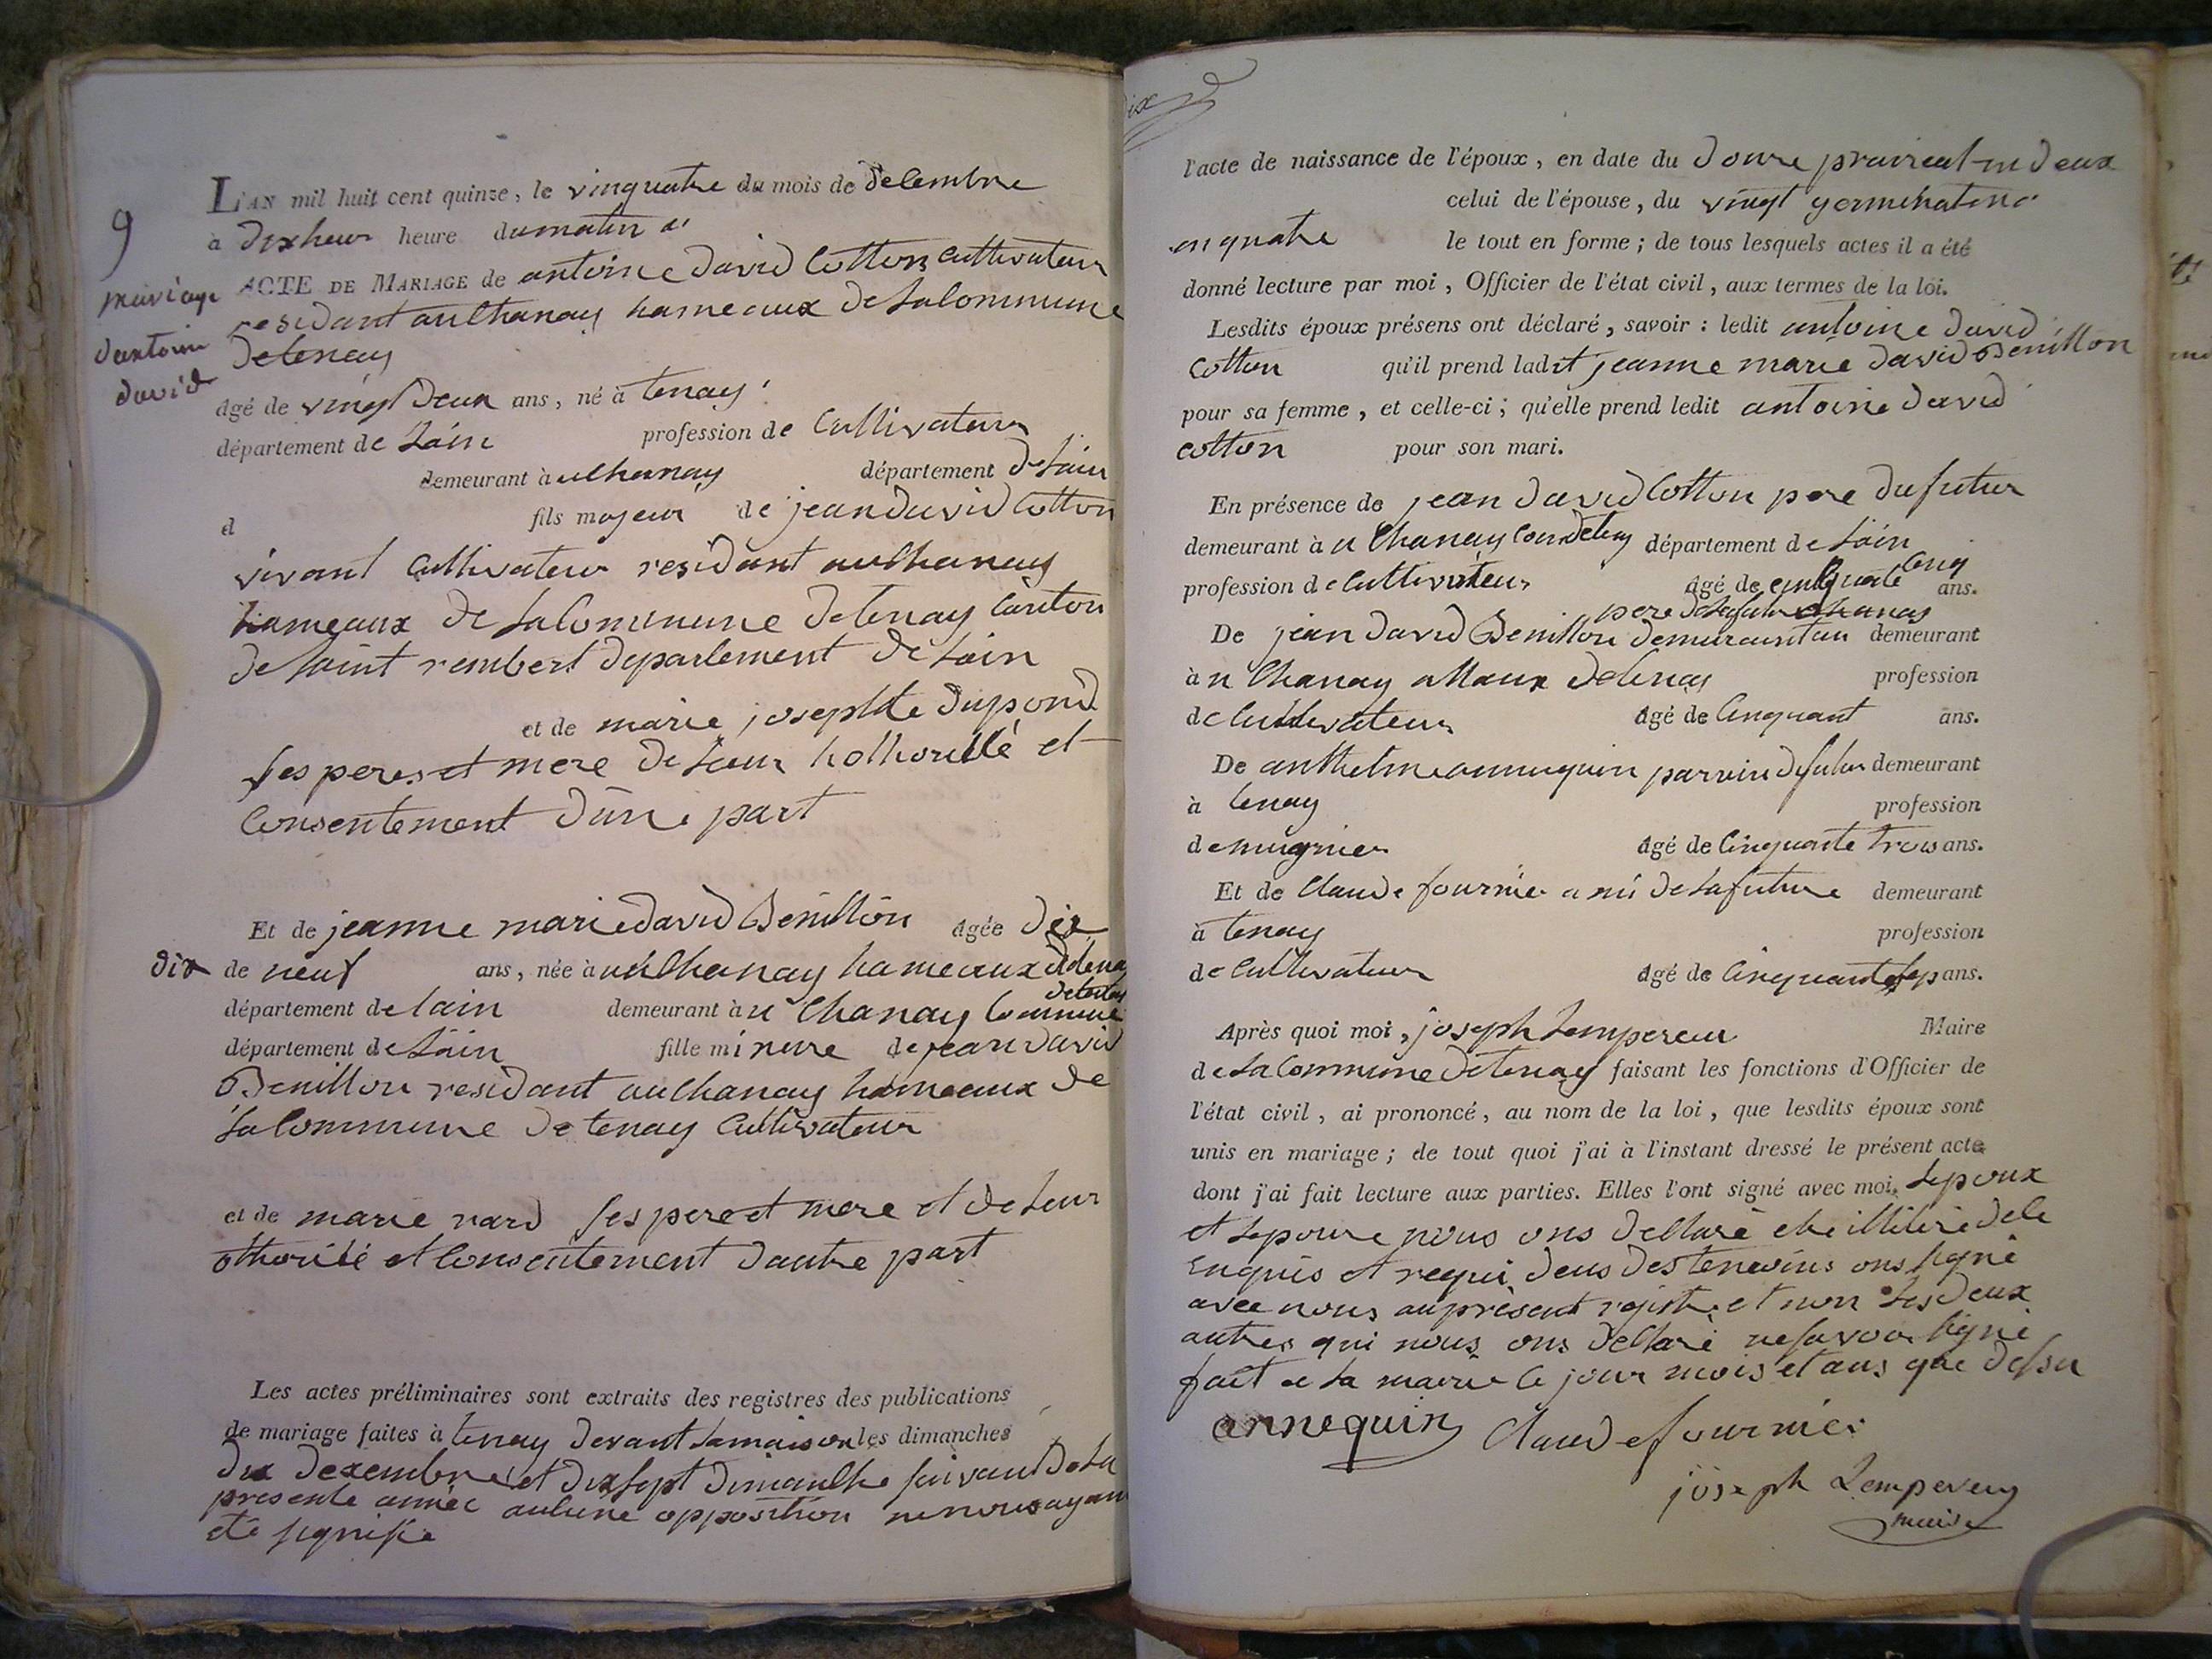 9
mariage
dantoine
david
L'AN mil huit cent quinze, le vingquatre du mois de decembre
à dixheur heure dumatin
ACTE DE MARIAGE de antoine david Cotton cultivateur
residant auchanay hameaux de la commune
de tenay
âgé de vingt deux ans, né à tenay
département de Lain profession de Cultivateur
demeurant à uchanay département de lain
fils majeur de jean david Cotton
vivant Cultivateur residant auchanay
hameaux de la Commune de tenay Canton
de saint rembert departement de lain
et de marie josephte dupond
ses peres et mere de leur hothorité et
Consentement dune part
Et de jeanne marie david Benillon agée dix
dix de neuf ans, née à uchanay hameaux de tenay
département de lain demeurant à u Chanay Commune de tenay
département de Lain fille mineure de jean david
Benillon residant auchanay hameaux de
la Commune de tenay Cultivateur
et de marie nard ses pere et mere et de leur
othorité et Consentement dautre part
Les actes préliminaires sont extraits des registres des publications
de mariage faites à tenay devant la maison les dimanches
dix dexembre et dix sept dimanche suivant de la
presente année aucune opposition ne nous ayan
été signifie
l'acte de naissance de l'époux, en date du douze prairial en deux
celui de l'épouse, du vingt germinal
en quatre le tout en forme; de tous lesquels actes il a été
donné lecture par moi, Officier de l'état civil, aux termes de la loi.
Lesdits époux présens ont déclaré, savoir : ledit antoine david
Cotton qu'il prend ladit jeanne marie david Benillon
pour sa femme, et celle-ci; qu'elle prend ledit antoine david
cotton pour son mari.
En présence de jean david Cotton pere du futur
demeurant à u Chanay département de Lain
profession de Cultivateur âgé de cinquante cinq ans.
pere de la
De jean david Benillon demurant au demeurant
à u Chanay de tenay profession
de Cultivateur âgé de Cinquant ans.
De anthelme demeurant
à tenay profession
de mugnier âgé de Cinquante trois ans.
Et de Claude fournier ami de la future demeurant
à tenay profession
de Cultivateur âgé de Cinquante sep ans.
Après quoi moi, joseph Lempereur Maire
de la Commune de tenay faisant les fonctions d'Officier de
l'état civil, ai prononcé, au nom de la loi, que lesdits époux sont
unis en mariage; de tout quoi j'ai à l'instant dressé le présent acte
dont j'ai fait lecture aux parties. Elles l'ont signé avec moi. lepoux
et lepouse nous ons dellaré de le
enquis et requi deus des temoins ons signé
avec nous au présent registre et non les deux
autres qui nous ons dellaré ne savoir signé
fait a la mairie le jour mois et ans que dessu
annequin Claude fournier
joseph Lempereur
maire